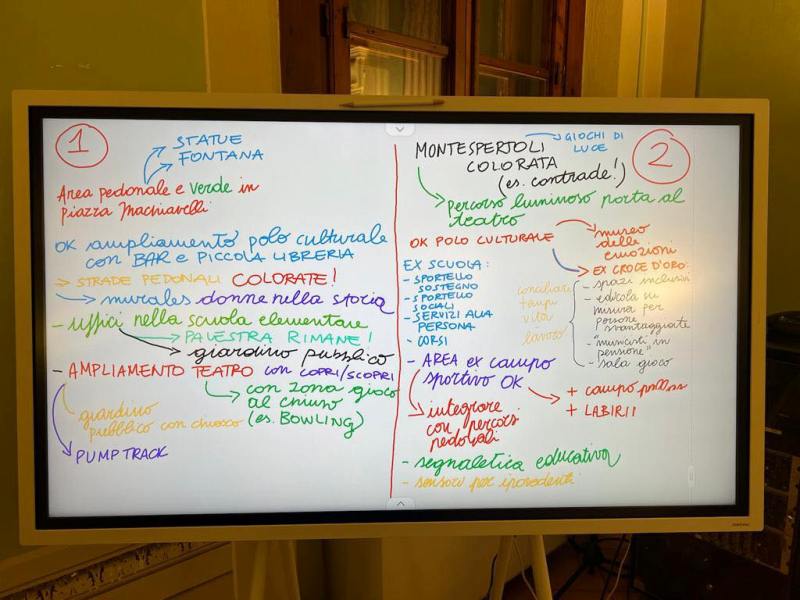 1
STATUE
FONTANA
Area pedonale e verde in
piazza Machiavelli
OK ampliamento polo culturale
con BAR e PICCOLA LIBRERIA
STRADE PEDONALI COLORATE!
murales donne nella storia
- uffici nella scuola elementare
PALESTRA RIMANE!
giardino pubblico
- AMPLIAMENTO TEATRO con COPRI/SCOPRI
con zona gioco
al chiuso
(es. BOWLING)
giardino
pubblico con chiosco
PUMPTRACK
2
MONTESPERTOLI
COLORATA
(es. contrade!)
GIOCHI DI
LUCE
percorso luminoso porta al
teatro
OK POLO CULTURALE
museo
delle
emozioni
EX CROCE D'ORO:
- spazi inclusivi
- edicola su
misura per
persone
svantaggiate
- "musicisti in
pensione"
- sala gioco
conciliare
tempi
vita
lavoro
EX SCUOLA:
- SPORTELLO
SOSTEGNO
- SPORTELLO
SOCIALI
- SERVIZI ALLA
PERSONA
- CORSI
- AREA ex campo
sportivo OK
+ campo
+ LABIRII
integrare
con percorsi
pedonali
- segnaletica educativa
- sensori per ipovedenti